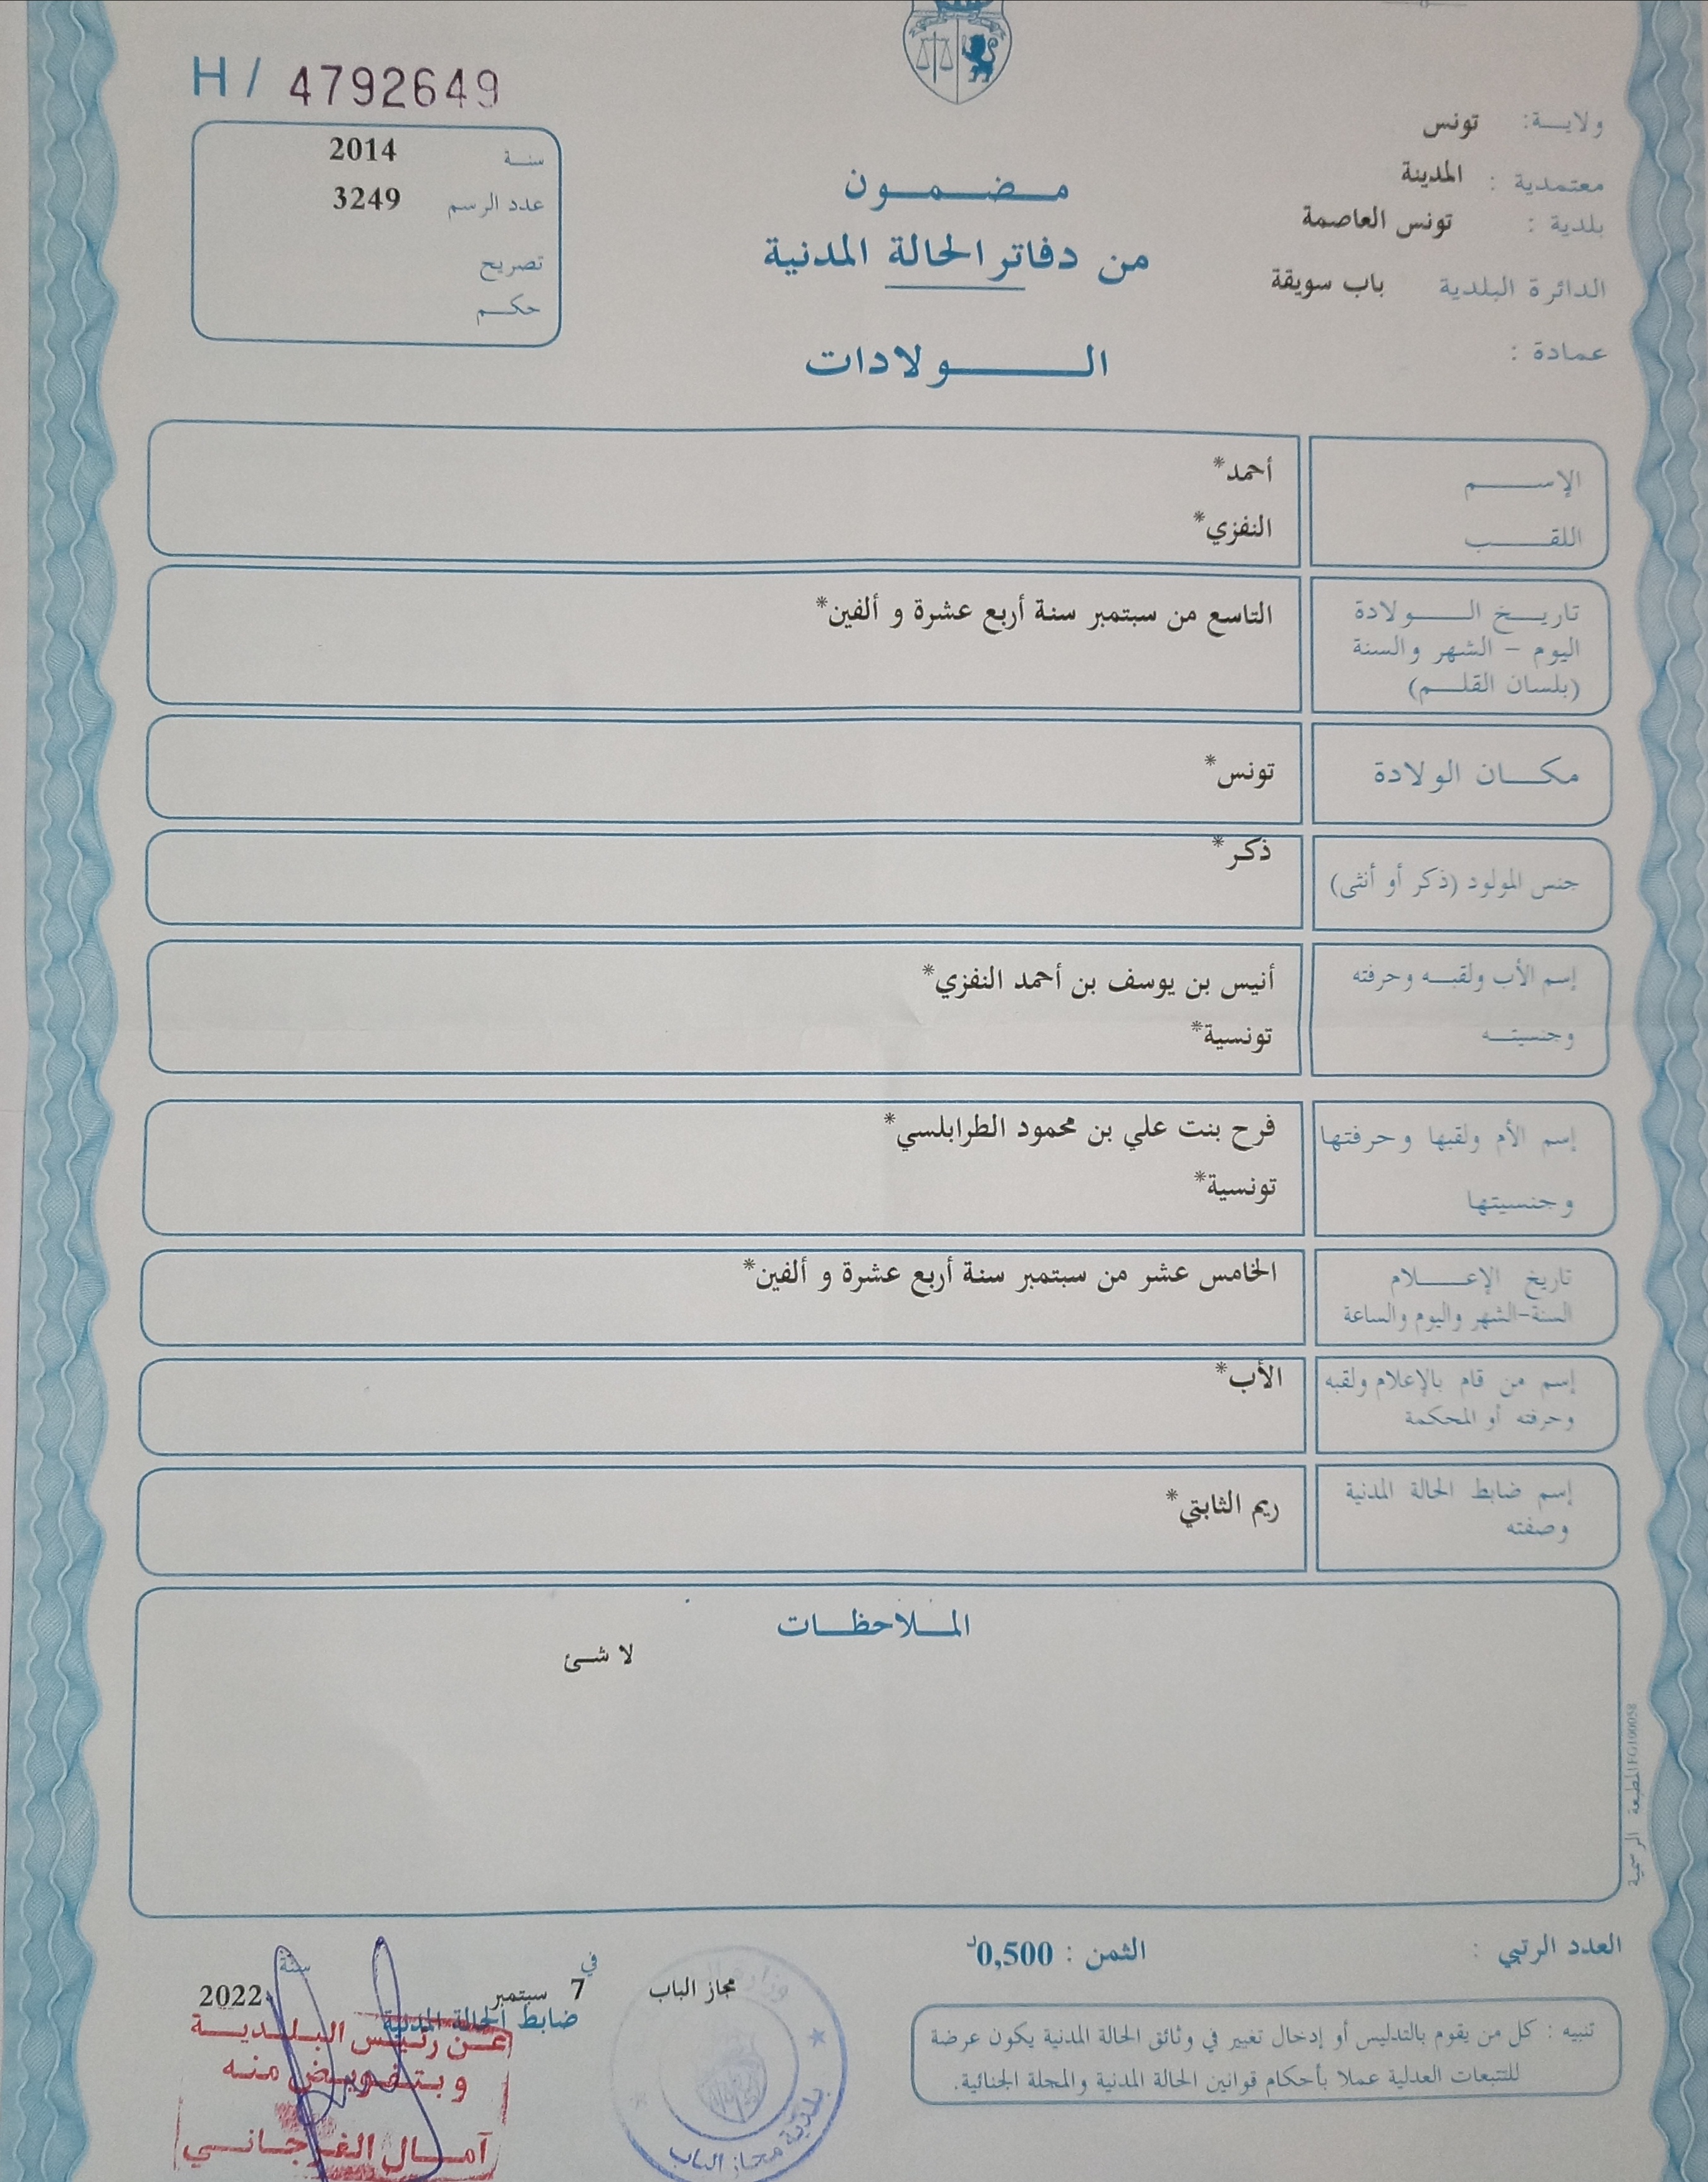 H / 4792649
سنة 2014
عدد الرسم 3249
تصريح
حكم
ولاية: تونس
معتمدية : المدينة
بلدية : تونس العاصمة
الدائرة البلدية باب سويقة
عمادة :
مضمون
من دفاتر الحالة المدنية
الولادات
الإسم أحمد*
اللقب النفزي*
تاريخ الولادة التاسع من سبتمبر سنة أربع عشرة و ألفين*
اليوم - الشهر والسنة
(بلسان القلم)
مكان الولادة تونس*
جنس المولود (ذكر أو أنثى) ذكر*
إسم الأب ولقبه وحرفته أنيس بن يوسف بن أحمد النفزي*
وجنسيته تونسية*
إسم الأم ولقبها وحرفتها فرح بنت علي بن محمود الطرابلسي*
وجنسيتها تونسية*
تاريخ الإعلام الخامس عشر من سبتمبر سنة أربع عشرة و ألفين*
السنة-الشهر واليوم والساعة
إسم من قام بالإعلام ولقبه الأب*
وحرفته أو المحكمة
إسم ضابط الحالة المدنية ريم الثابتي*
وصفته
الملاحظات
لا شئ
المطبعة الرسمية FG100058
العدد الرتبي :
الثمن : 0,500د
تنبيه : كل من يقوم بالتدليس أو إدخال تغيير في وثائق الحالة المدنية يكون عرضة
للتتبعات العدلية عملا بأحكام قوانين الحالة المدنية والمجلة الجنائية.
مجاز الباب في 7 سبتمبر سنة 2022
ضابط الحالة المدنية
عن رئيس البلدية
وبتفويض منه
آمال الغرجاني
بلدية مجاز الباب